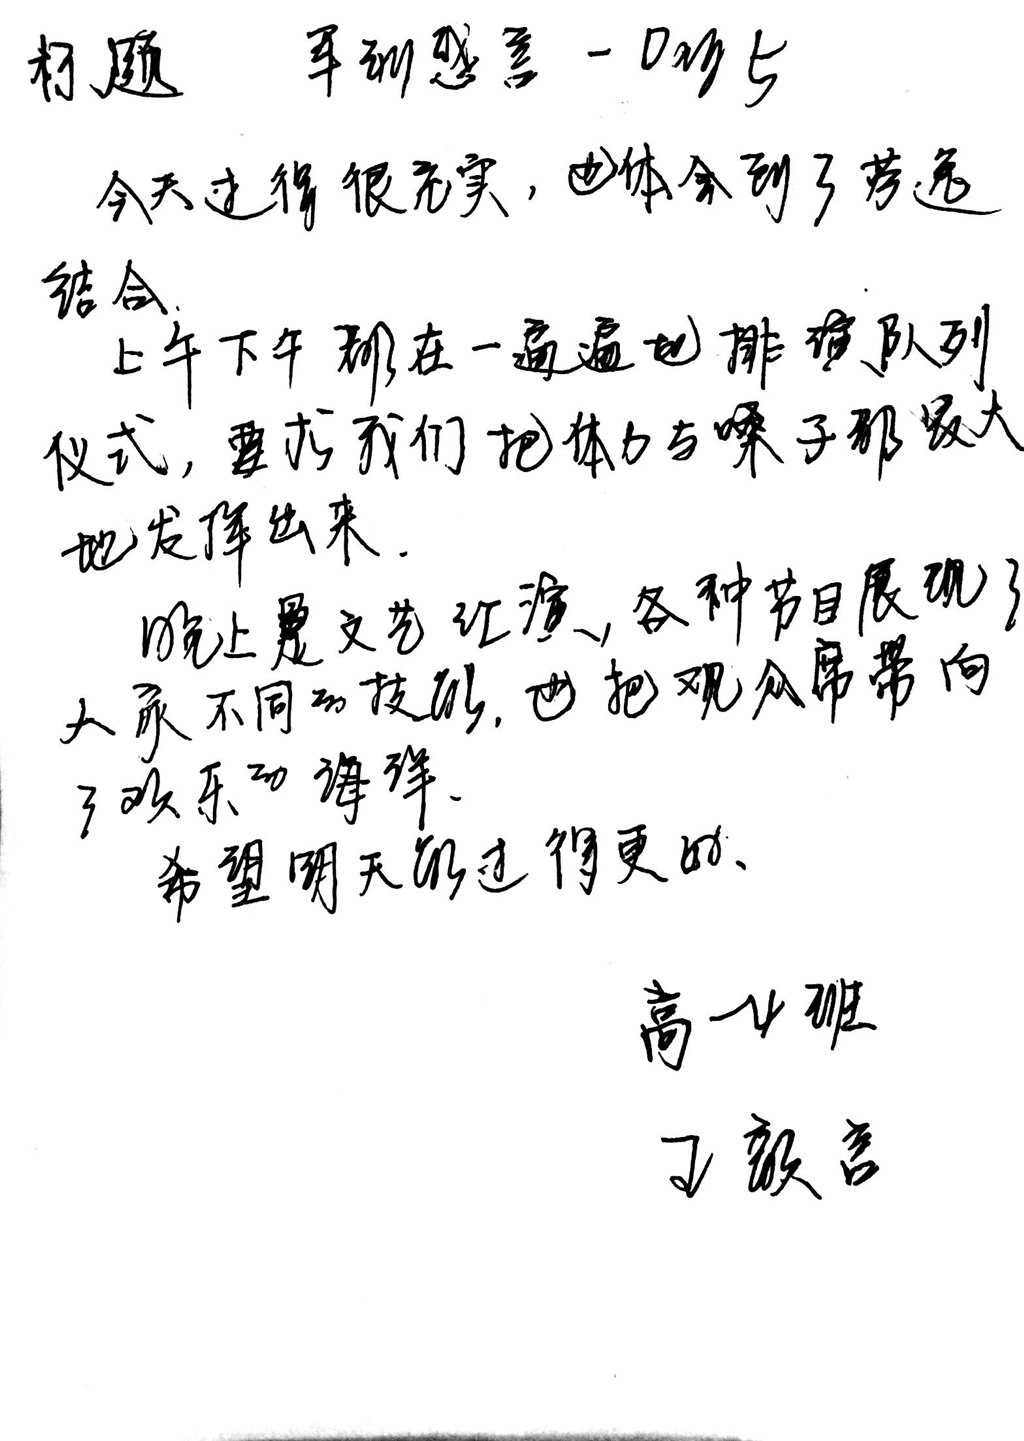 标题 军训感言 - Day 5
今天过得很充实，也体会到了劳逸
结合.
上午下午都在一遍遍地排演队列
仪式，要求我们把体力与嗓子都最大
地发挥出来.
晚上是文艺汇演，各种节目展现了
大家不同的技能，也把观众席带向
了欢乐的海洋.
希望明天能过得更好、
高一4班
王毅言